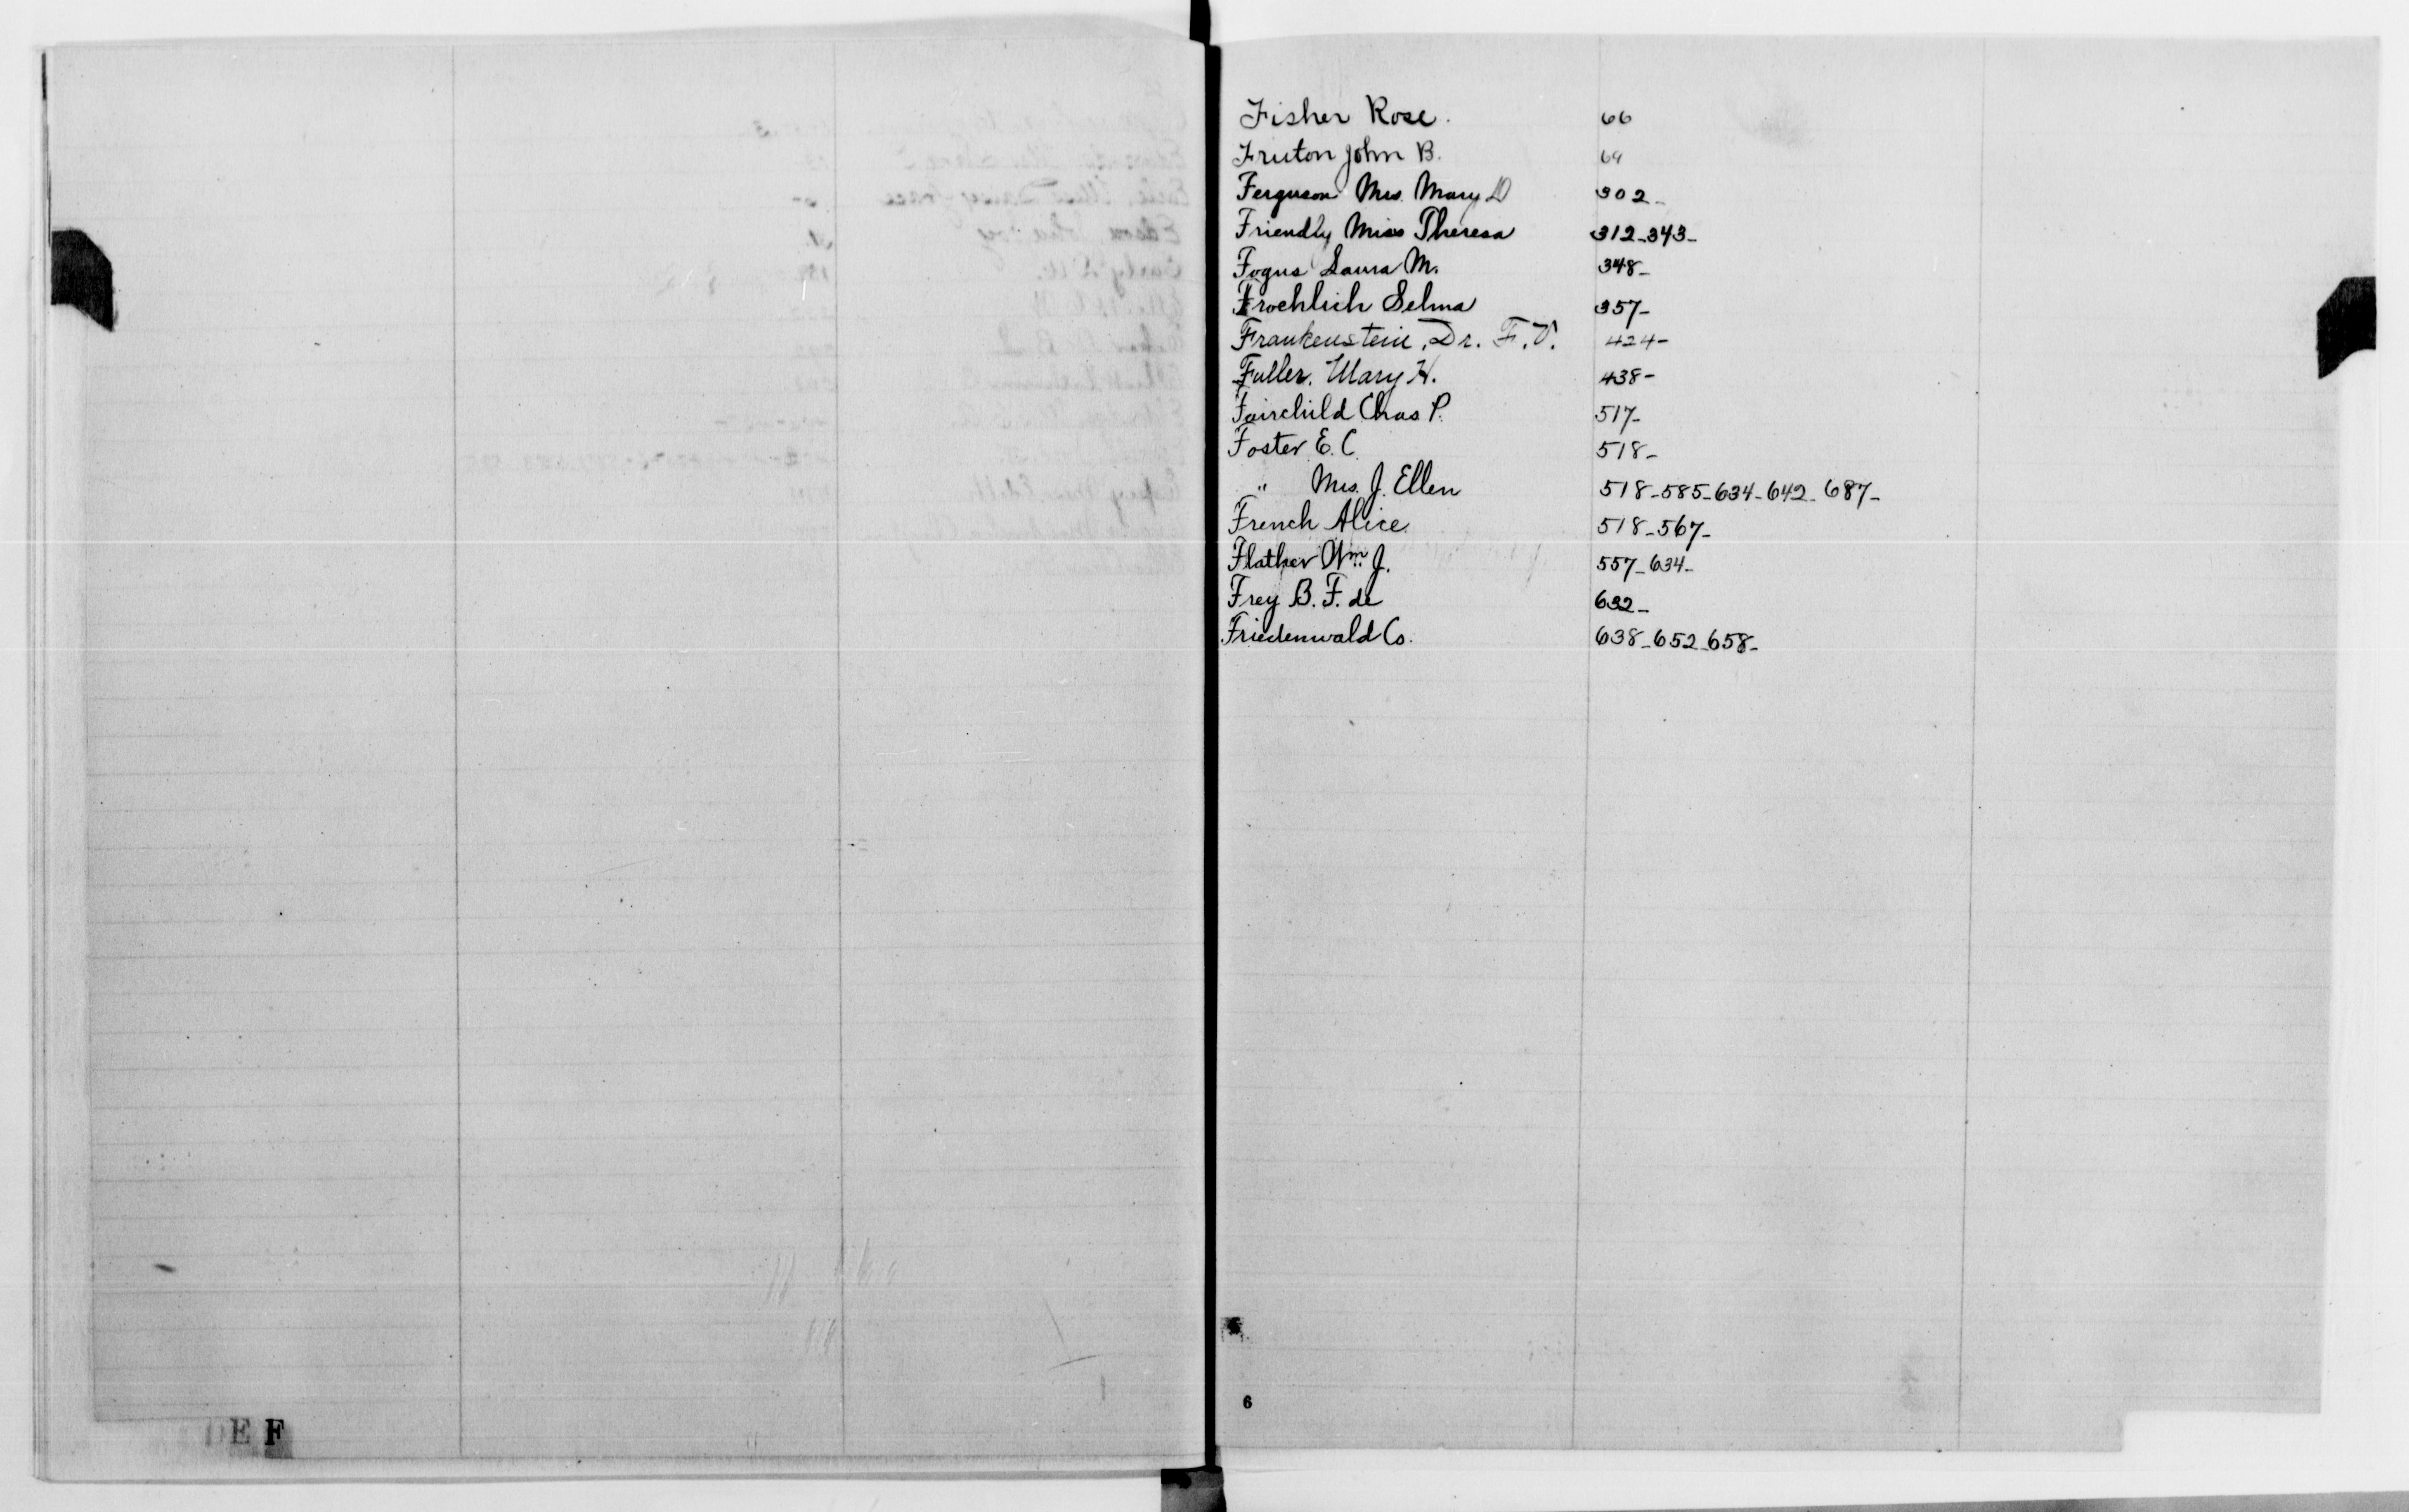 Fisher Rose. 66
Fruton John B. 69
Ferguson Mrs. Mary D 302-
Friendly Miss Theresa 312-343-
Fogus Laura M. 348-
Froehlich Selma 357-
Frankenstein, Dr. F. V. 424-
Fuller, Mary H. 438-
Fairchild Chas P. 517-
Foster E. C. 518-
" Mrs. J. Ellen 518-585-634-642-687-
French Alice 518-567-
Flather Wm. J. 557-634-
Frey B. F. de 632-
Friedenwald Co. 638-652-658-
6
D E F